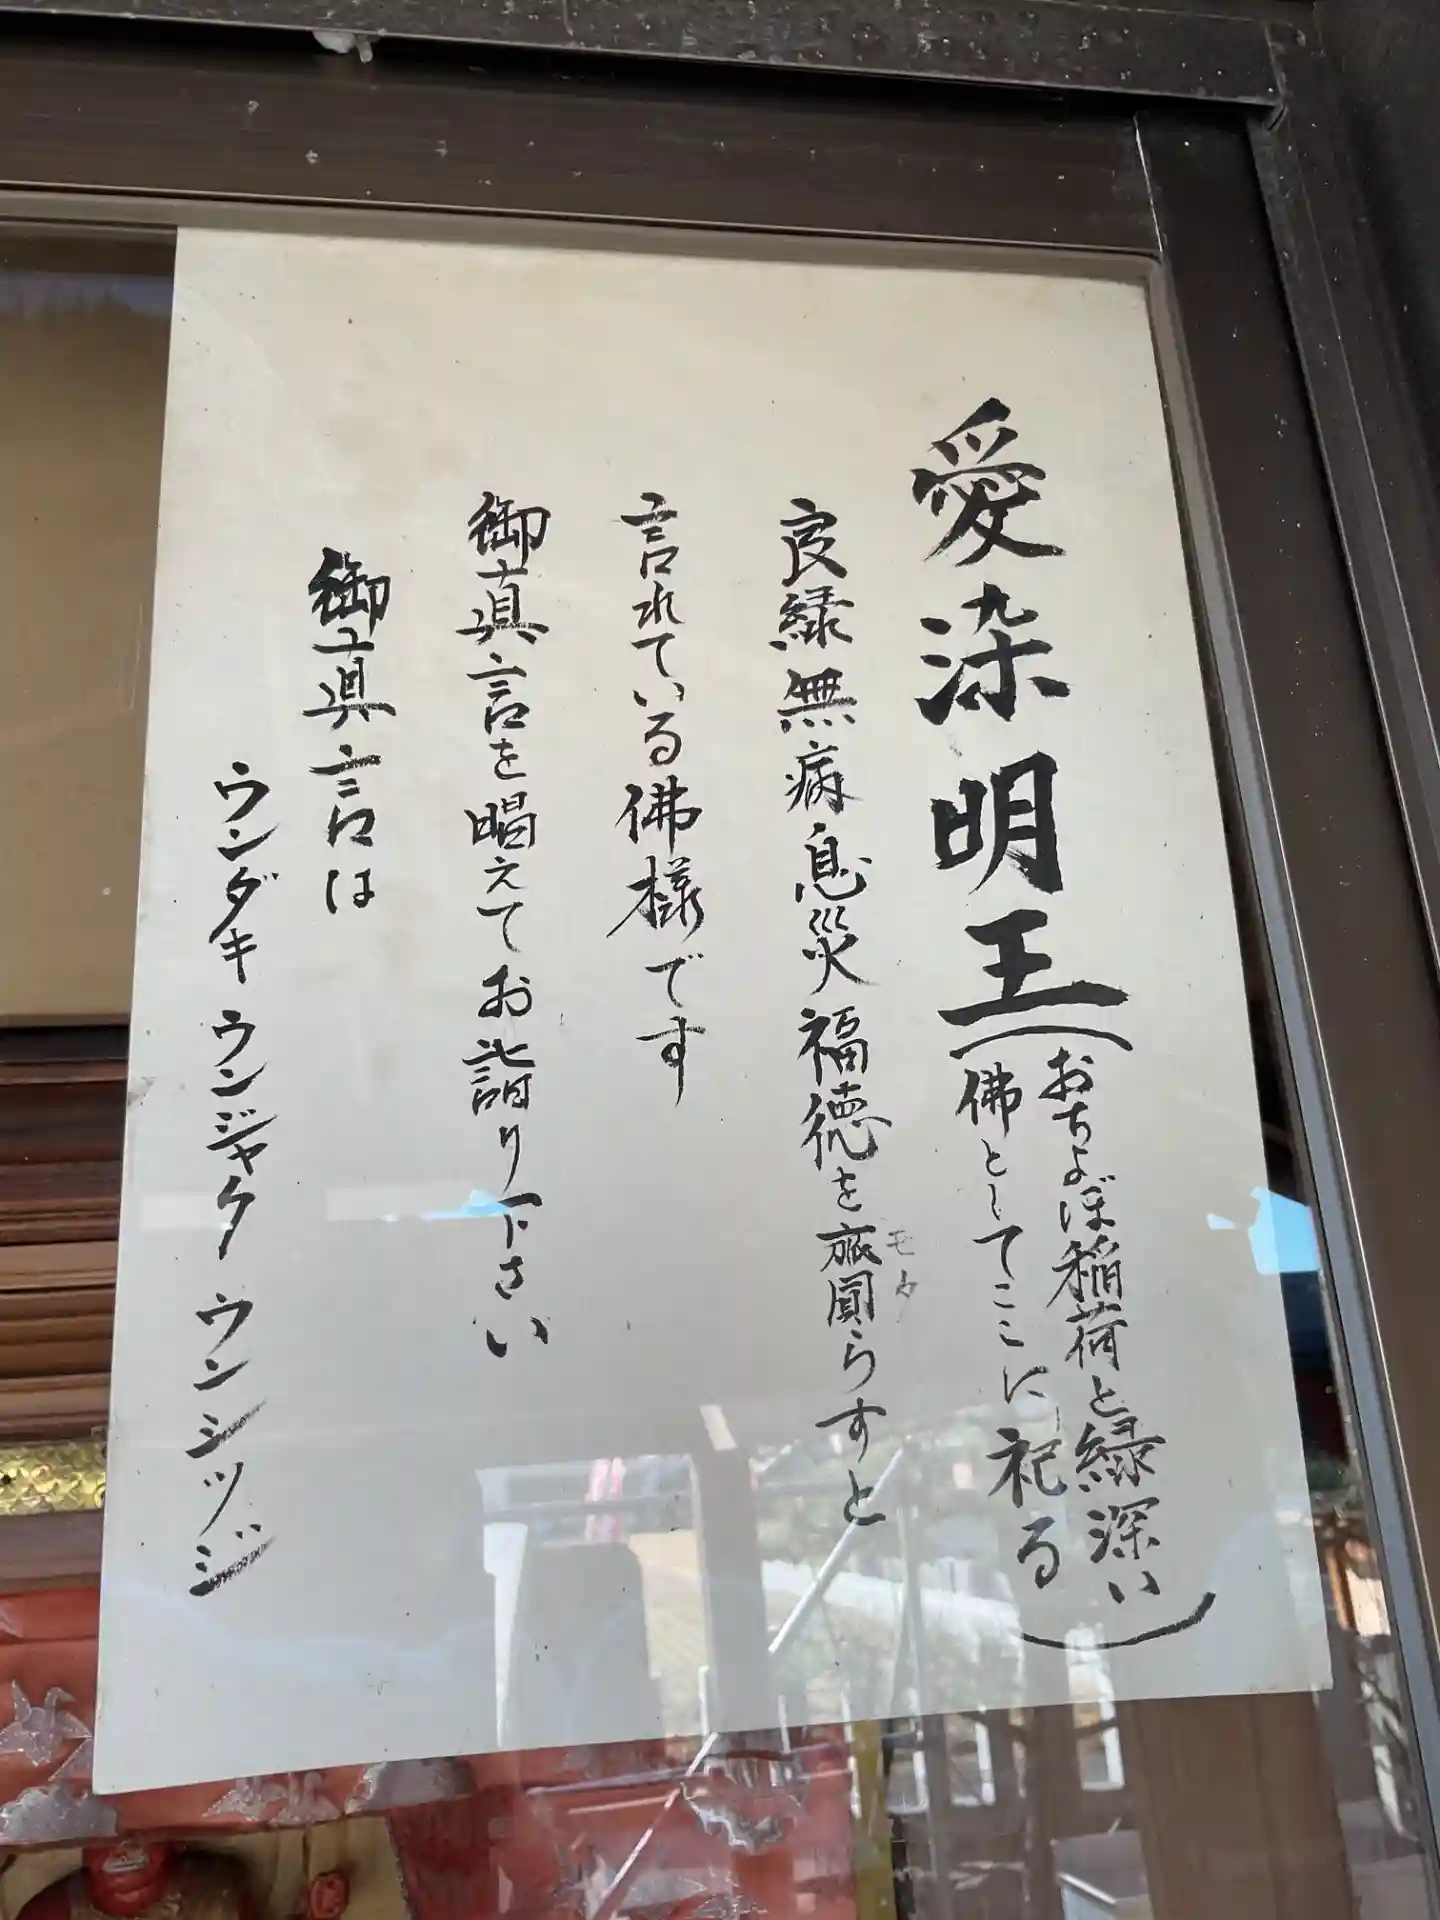 愛染明王
(おちよぼ稲荷と縁深い
佛としてここに祀る)
良縁無病息災福徳を齎らすと
モタ
言れている佛様です
御真言を唱えてお詣り下さい
御真言は
ウンダキ ウンジャク ウンシッジ